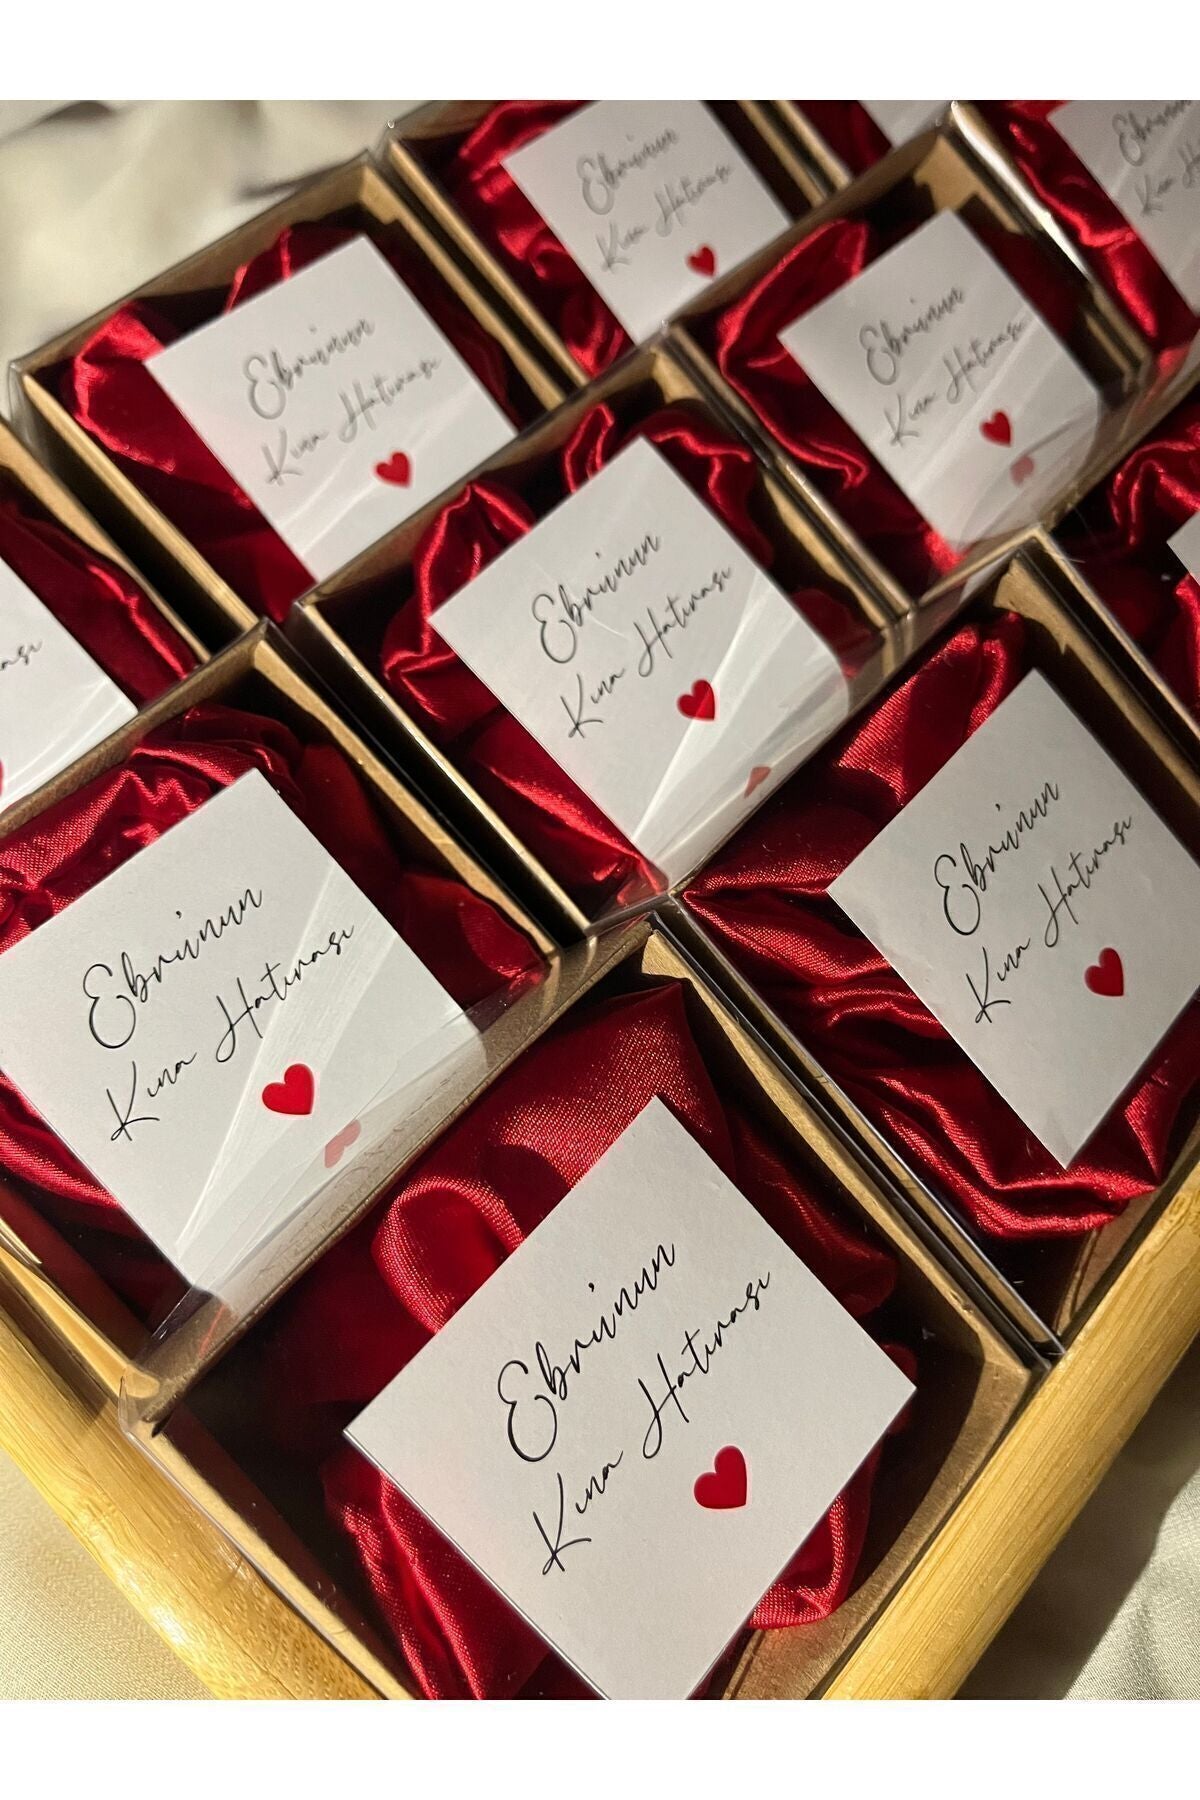 Ebrunun
Kına Hatırası
Ebrunun
Kına Hatırası
Ebrunun
Kına Hatırası
Ebrunun
Kına Hatırası
Ebrunun
Kına Hatırası
Ebrunun
Kına Hatırası
Ebrunun
Kına Hatırası
Ebrunun
Kına Hatırası